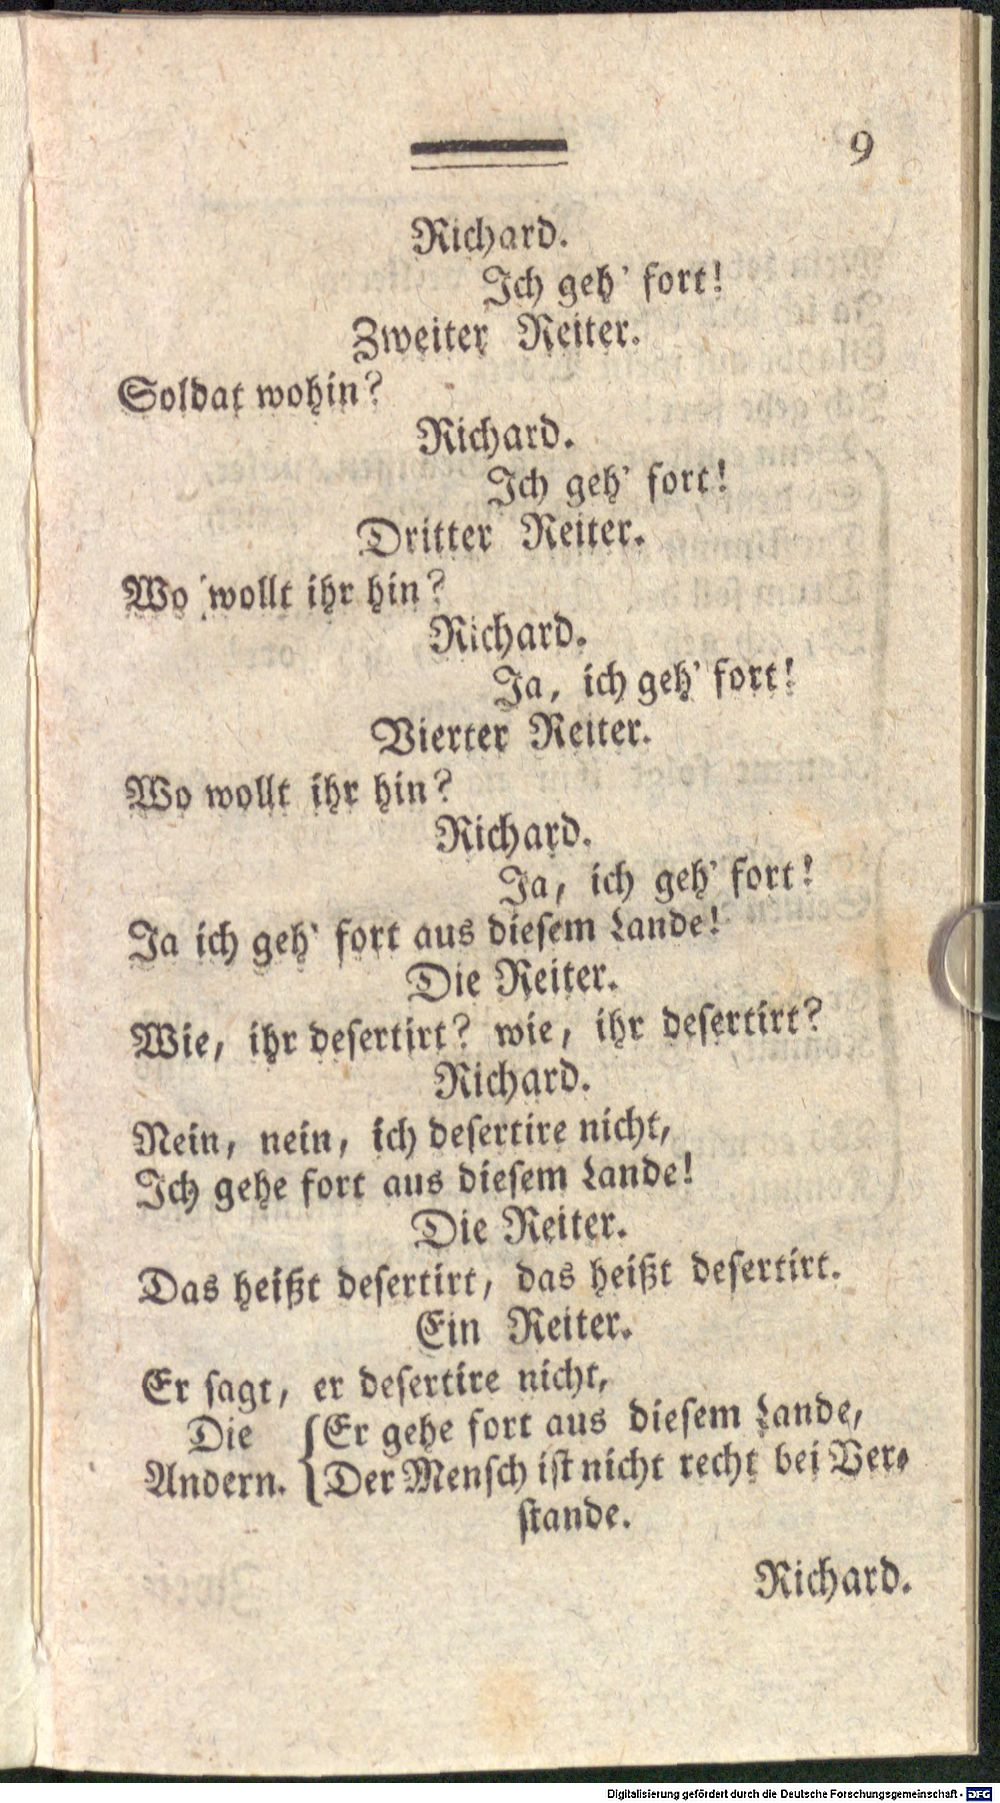 9
Richard.
Ich geh' fort!
Zweiter Reiter.
Soldat wohin?
Richard.
Ich geh' fort!
Dritter Reiter.
Wo wollt ihr hin?
Richard.
Ja, ich geh' fort!
Vierter Reiter.
Wo wollt ihr hin?
Richard.
Ja, ich geh' fort!
Ja ich geh' fort aus dieſem Lande!
Die Reiter.
Wie, ihr deſertirt? wie, ihr deſertirt?
Richard.
Nein, nein, ich deſertire nicht,
Ich gehe fort aus dieſem Lande!
Die Reiter.
Das heißt deſertirt, das heißt deſertirt.
Ein Reiter.
Er ſagt, er deſertire nicht,
Die { Er gehe fort aus dieſem Lande,
Andern. { Der Menſch iſt nicht recht bei Ver⸗
ſtande.
Richard.
Digitalisierung gefördert durch die Deutsche Forschungsgemeinschaft - DFG